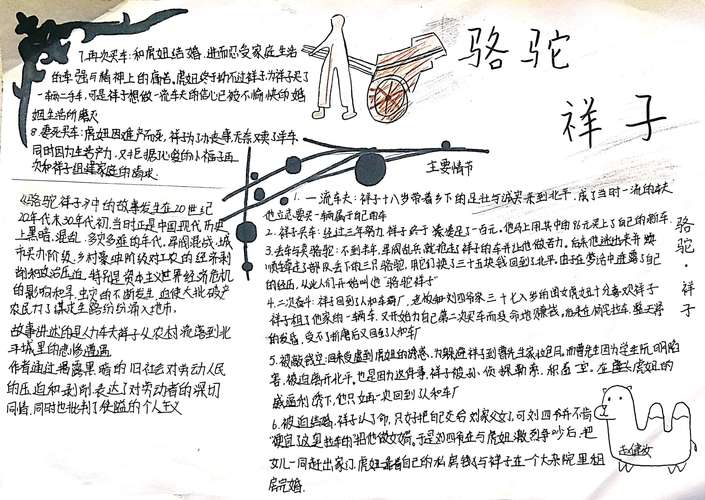 骆驼
祥子
7.再次买车:和虎妞结婚,进而忍受家庭生活
的牵强与精神上的痛苦。虎妞终于拗不过祥子为祥子买了
一辆二手车,可是祥子想做一流车夫的信心已被不愉快的婚
姻生活所磨灭
8.要死买车:虎妞因难产而死,祥子为办丧事,无奈又卖了车。
同时因为生活产力,又拒绝了心爱的小福子再
次和祥子组建家庭的请求。
《骆驼祥子》中的故事发生在20世纪
20年代末30年代初,当时正是中国现代历史
上黑暗、混乱、多灾多难的年代,军阀混战,城
市买办阶级、乡村豪绅阶级对工农的经济剥
削和政治压迫,特别是资本主义世界经济危机
的影响和旱、虫灾的不断发生,迫使大批破产
农民为了谋求生路纷纷涌入城市。
故事讲述的是人力车夫祥子从农村流落到北
平城里的悲惨遭遇
作者通过揭露黑暗的旧社会对劳动人民
的压迫和剥削,表达了对劳动者的深切
同情,同时也批判了极端的个人主义
主要情节
1.一流车夫:祥子十八岁带着乡下的足壮与诚实来到北平,成了当时一流的车夫
他立志要买一辆属于自己的车
2.祥子买车:经过三年努力,祥子终于凑足了一百元。他马上用其中的96元买上了自己的新车
3.丢车与卖骆驼:不到半年,军阀乱兵就抢走了祥子的车并让他做苦力。后来他逃出来并
顺手牵走了部队丢下的三只骆驼,用它们换了三十五块钱回到了北平。由于在梦话中透露了自己
的经历,从此人们开始叫他"骆驼祥子"
4.二次奋斗:祥子回到了人和车厂,老板和刘四爷家三十七八岁的闺女虎妞十分喜欢祥子
祥子租了他家的一辆车,又开始为自己第二次买车而玩命地赚钱。
5.被敲诈空:回来受虐到虎妞的诱惑,为躲避祥子到曹先生家拉包月。而曹先生因为学生阮明陷
害,被迫离开北平。也是因为这件事,祥子被孙侦探勒索,积蓄空。在
威逼利诱下,他只好再一次回到了人和车厂
6.被迫结婚:祥子认了命,只好把自己交给刘家父女了,可刘四爷并不情
女儿一同赶出家门,虎妞拿着自己的私房钱与祥子在一个大杂院里租
房完婚。
骆
驼
·
祥
子